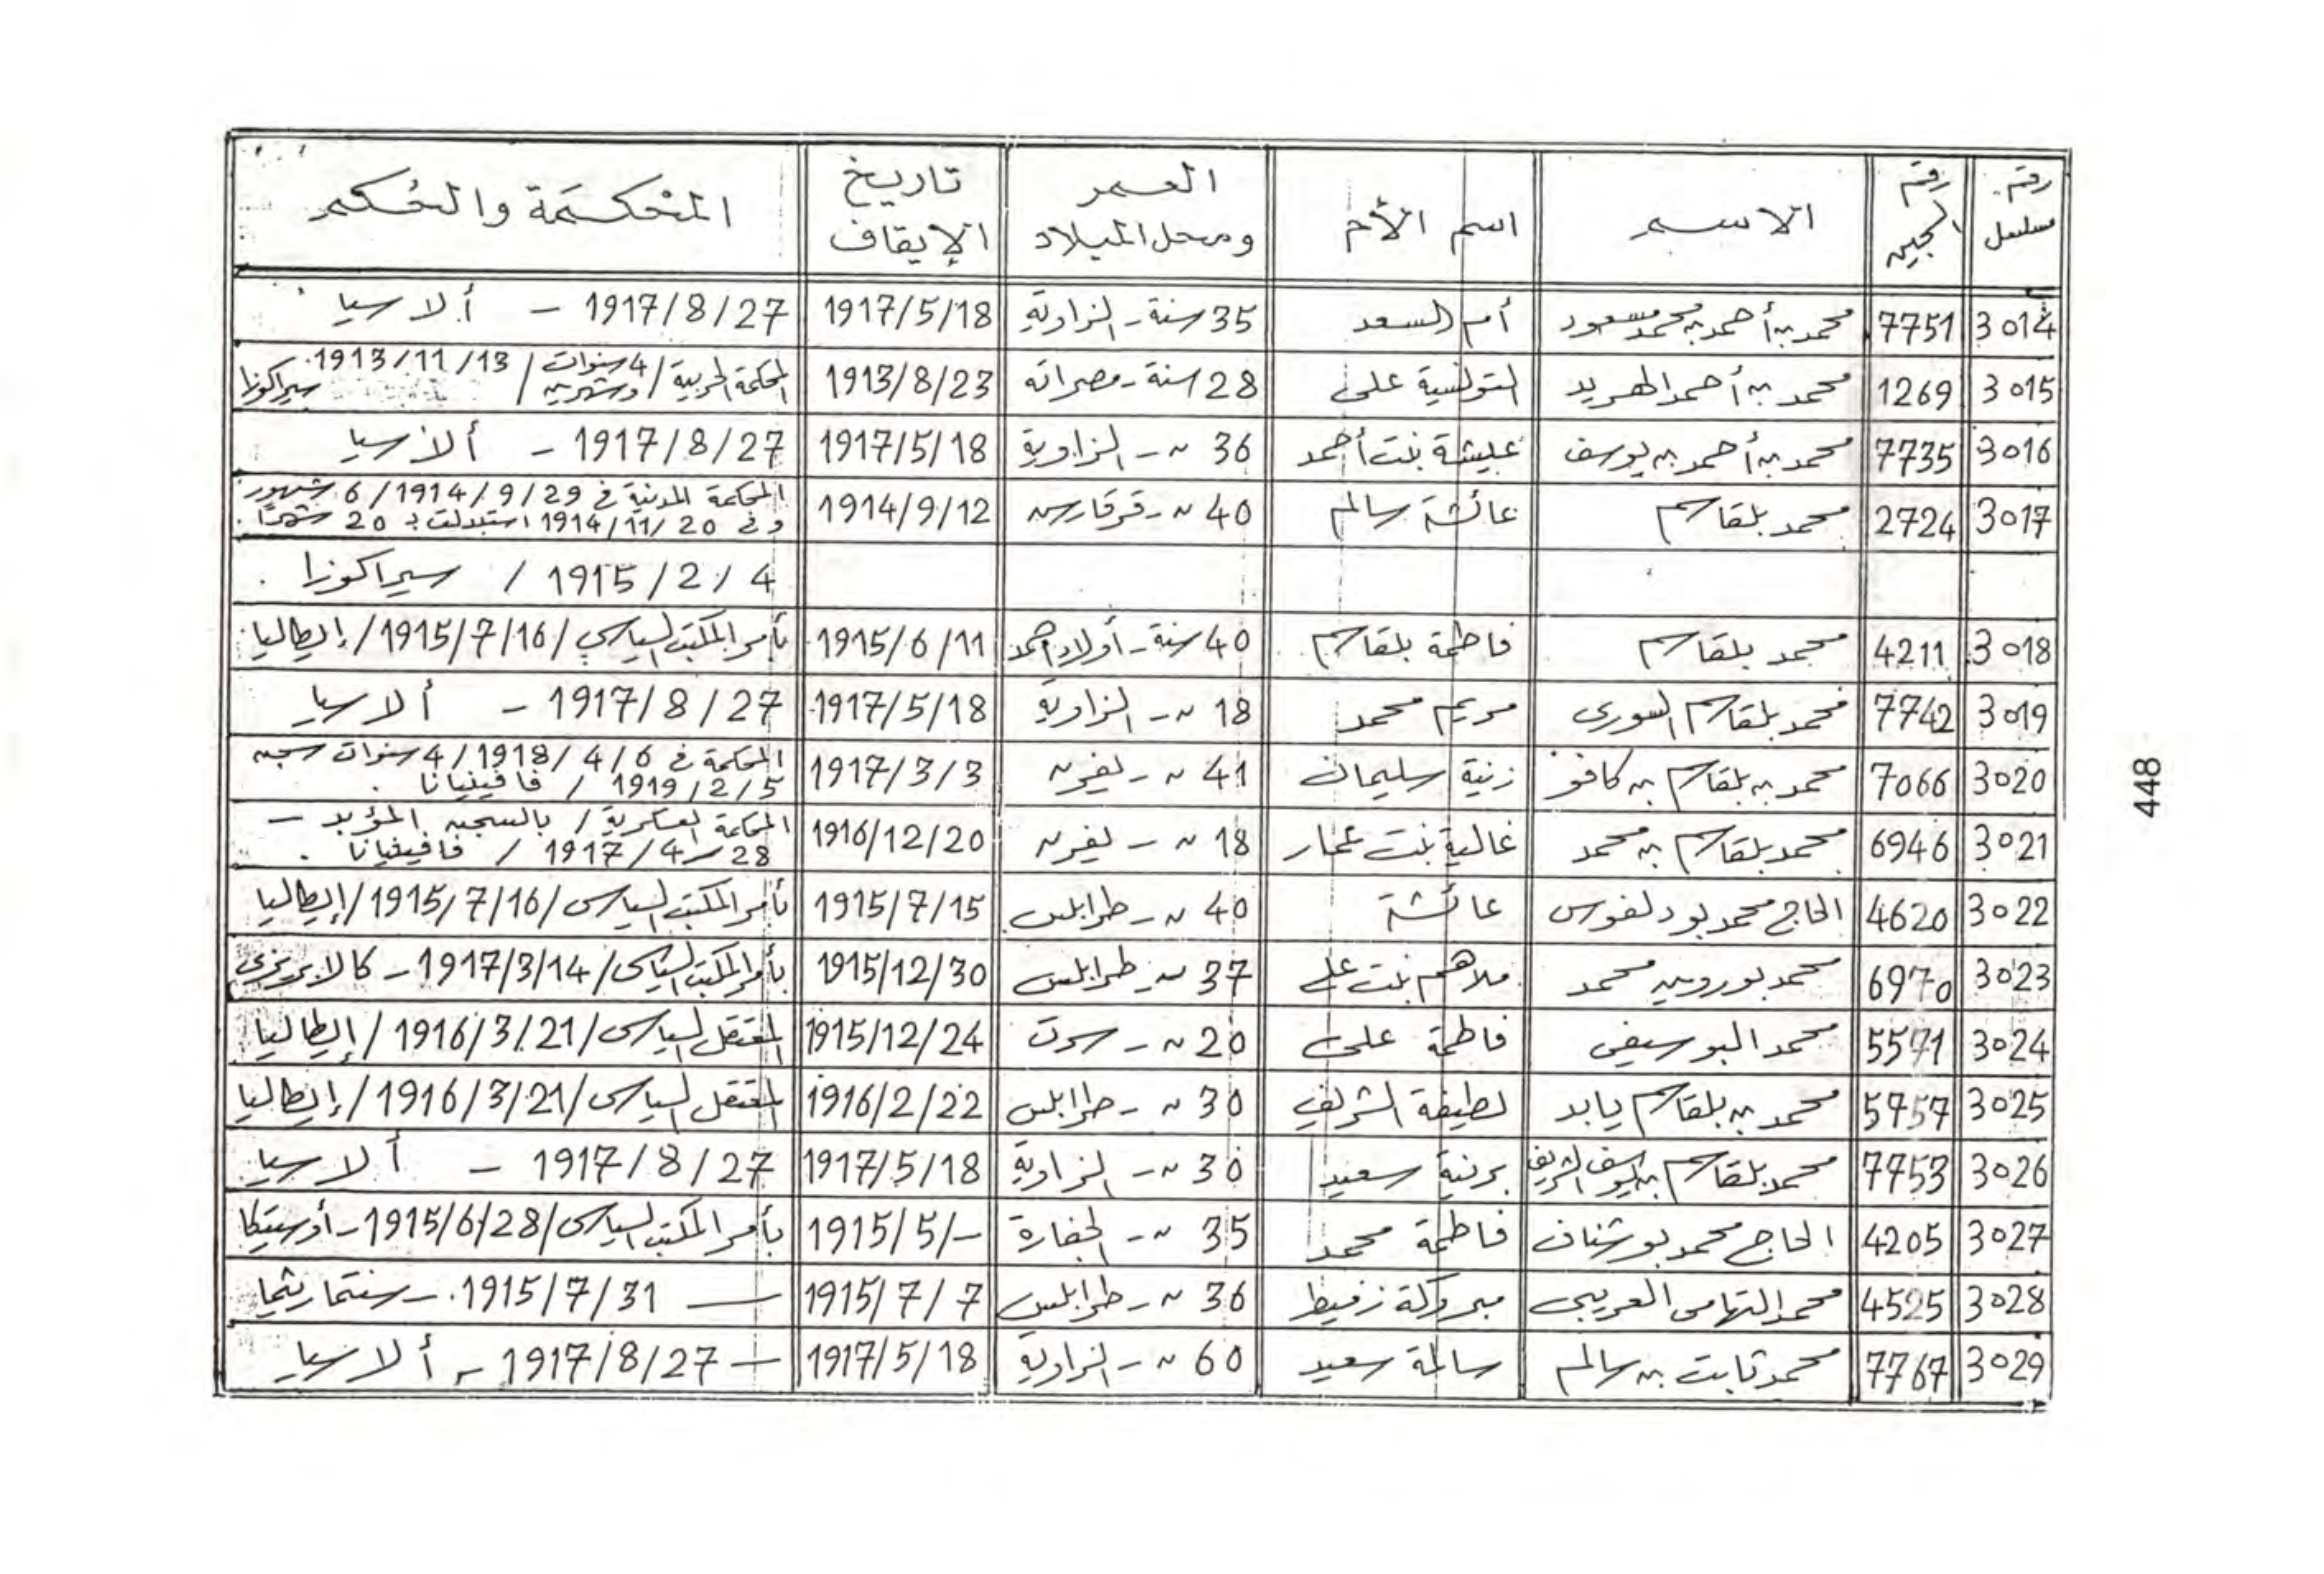 رقم مسلسل | رقم السجين | الاسم | اسم الأم | العمر ومحل الميلاد | تاريخ الإيقاف | المحكمة والحكم
3014 | 7751 | محمد بن أحمد بن محمد مسعود | أم السعد | 35 سنة - الزاوية | 1917/5/18 | 1917/8/27 - ألاسيا
3015 | 1269 | محمد بن أحمد الهريد | التونسية على | 28 سنة - مصراته | 1913/8/23 | المحكمة الحربية / 4 سنوات وشهرين / 1913/11/13 سيراكوزا
3016 | 7735 | محمد بن أحمد بن يوسف | عيشة بنت أحمد | 36 س - الزاوية | 1917/5/18 | 1917/8/27 - ألاسيا
3017 | 2724 | محمد بلقاسم | عائشة سالم | 40 س - قرقارس | 1914/9/12 | المحكمة المدنية في 1914/9/29 / 6 شهور
وفي 1914/11/20 استبدلت بـ 20 شهرًا .
1915/2/4 / سيراكوزا .
3018 | 4211 | محمد بلقاسم | فاطمة بلقاسم | 40 سنة - أولاد أحمد | 1915/6/11 | بأمر المكتب السياسي / 1915/7/16 / إيطاليا
3019 | 7742 | محمد بلقاسم السورى | مريم محمد | 18 س - الزاوية | 1917/5/18 | 1917/8/27 - ألاسيا
3020 | 7066 | محمد بن بلقاسم بن كافو | زنية سليمان | 41 س - يفرن | 1917/3/3 | المحكمة في 1918/4/6 / 4 سنوات سجن
1919/2/5 / فافينيانا .
3021 | 6946 | محمد بلقاسم بن محمد | غالية بنت عمار | 18 س - يفرن | 1916/12/20 | المحكمة العسكرية / بالسجن المؤبد -
28 - 1917/4 / فافينيانا .
3022 | 4620 | الحاج محمد بودلفوس | عائشة | 40 س - طرابلس | 1915/7/15 | بأمر المكتب السياسى / 1915/7/16 / إيطاليا
3023 | 6970 | محمد بوروين محمد | ملاهم بنت على | 37 س - طرابلس | 1915/12/30 | بأمر المكتب السياسى / 1917/3/14 - كالابريزى
3024 | 5571 | محمد البوسيفى | فاطمة على | 20 س - سرت | 1915/12/24 | المعتقل السياسى / 1916/3/21 / إيطاليا
3025 | 5757 | محمد بن بلقاسم يابد | لطيفة الشريف | 30 س - طرابلس | 1916/2/22 | المعتقل السياسى / 1916/3/21 / إيطاليا
3026 | 7753 | محمد بلقاسم بن يوسف الشريف | برنية سعيد | 30 س - الزاوية | 1917/5/18 | 1917/8/27 - ألاسيا
3027 | 4205 | الحاج محمد بوشناف | فاطمة محمد | 35 س - الجفارة | 1915/5/- | بأمر المكتب السياسى / 1915/6/28 - أوستيكا
3028 | 4525 | محمد التهامى العريبى | مبروكة زفيط | 36 س - طرابلس | 1915/7/7 | — 1915/7/31 - سنتماريتما
3029 | 7767 | محمد ثابت بن سالم | سالمة سعيد | 60 س - الزاوية | 1917/5/18 | — 1917/8/27 - ألاسيا
448